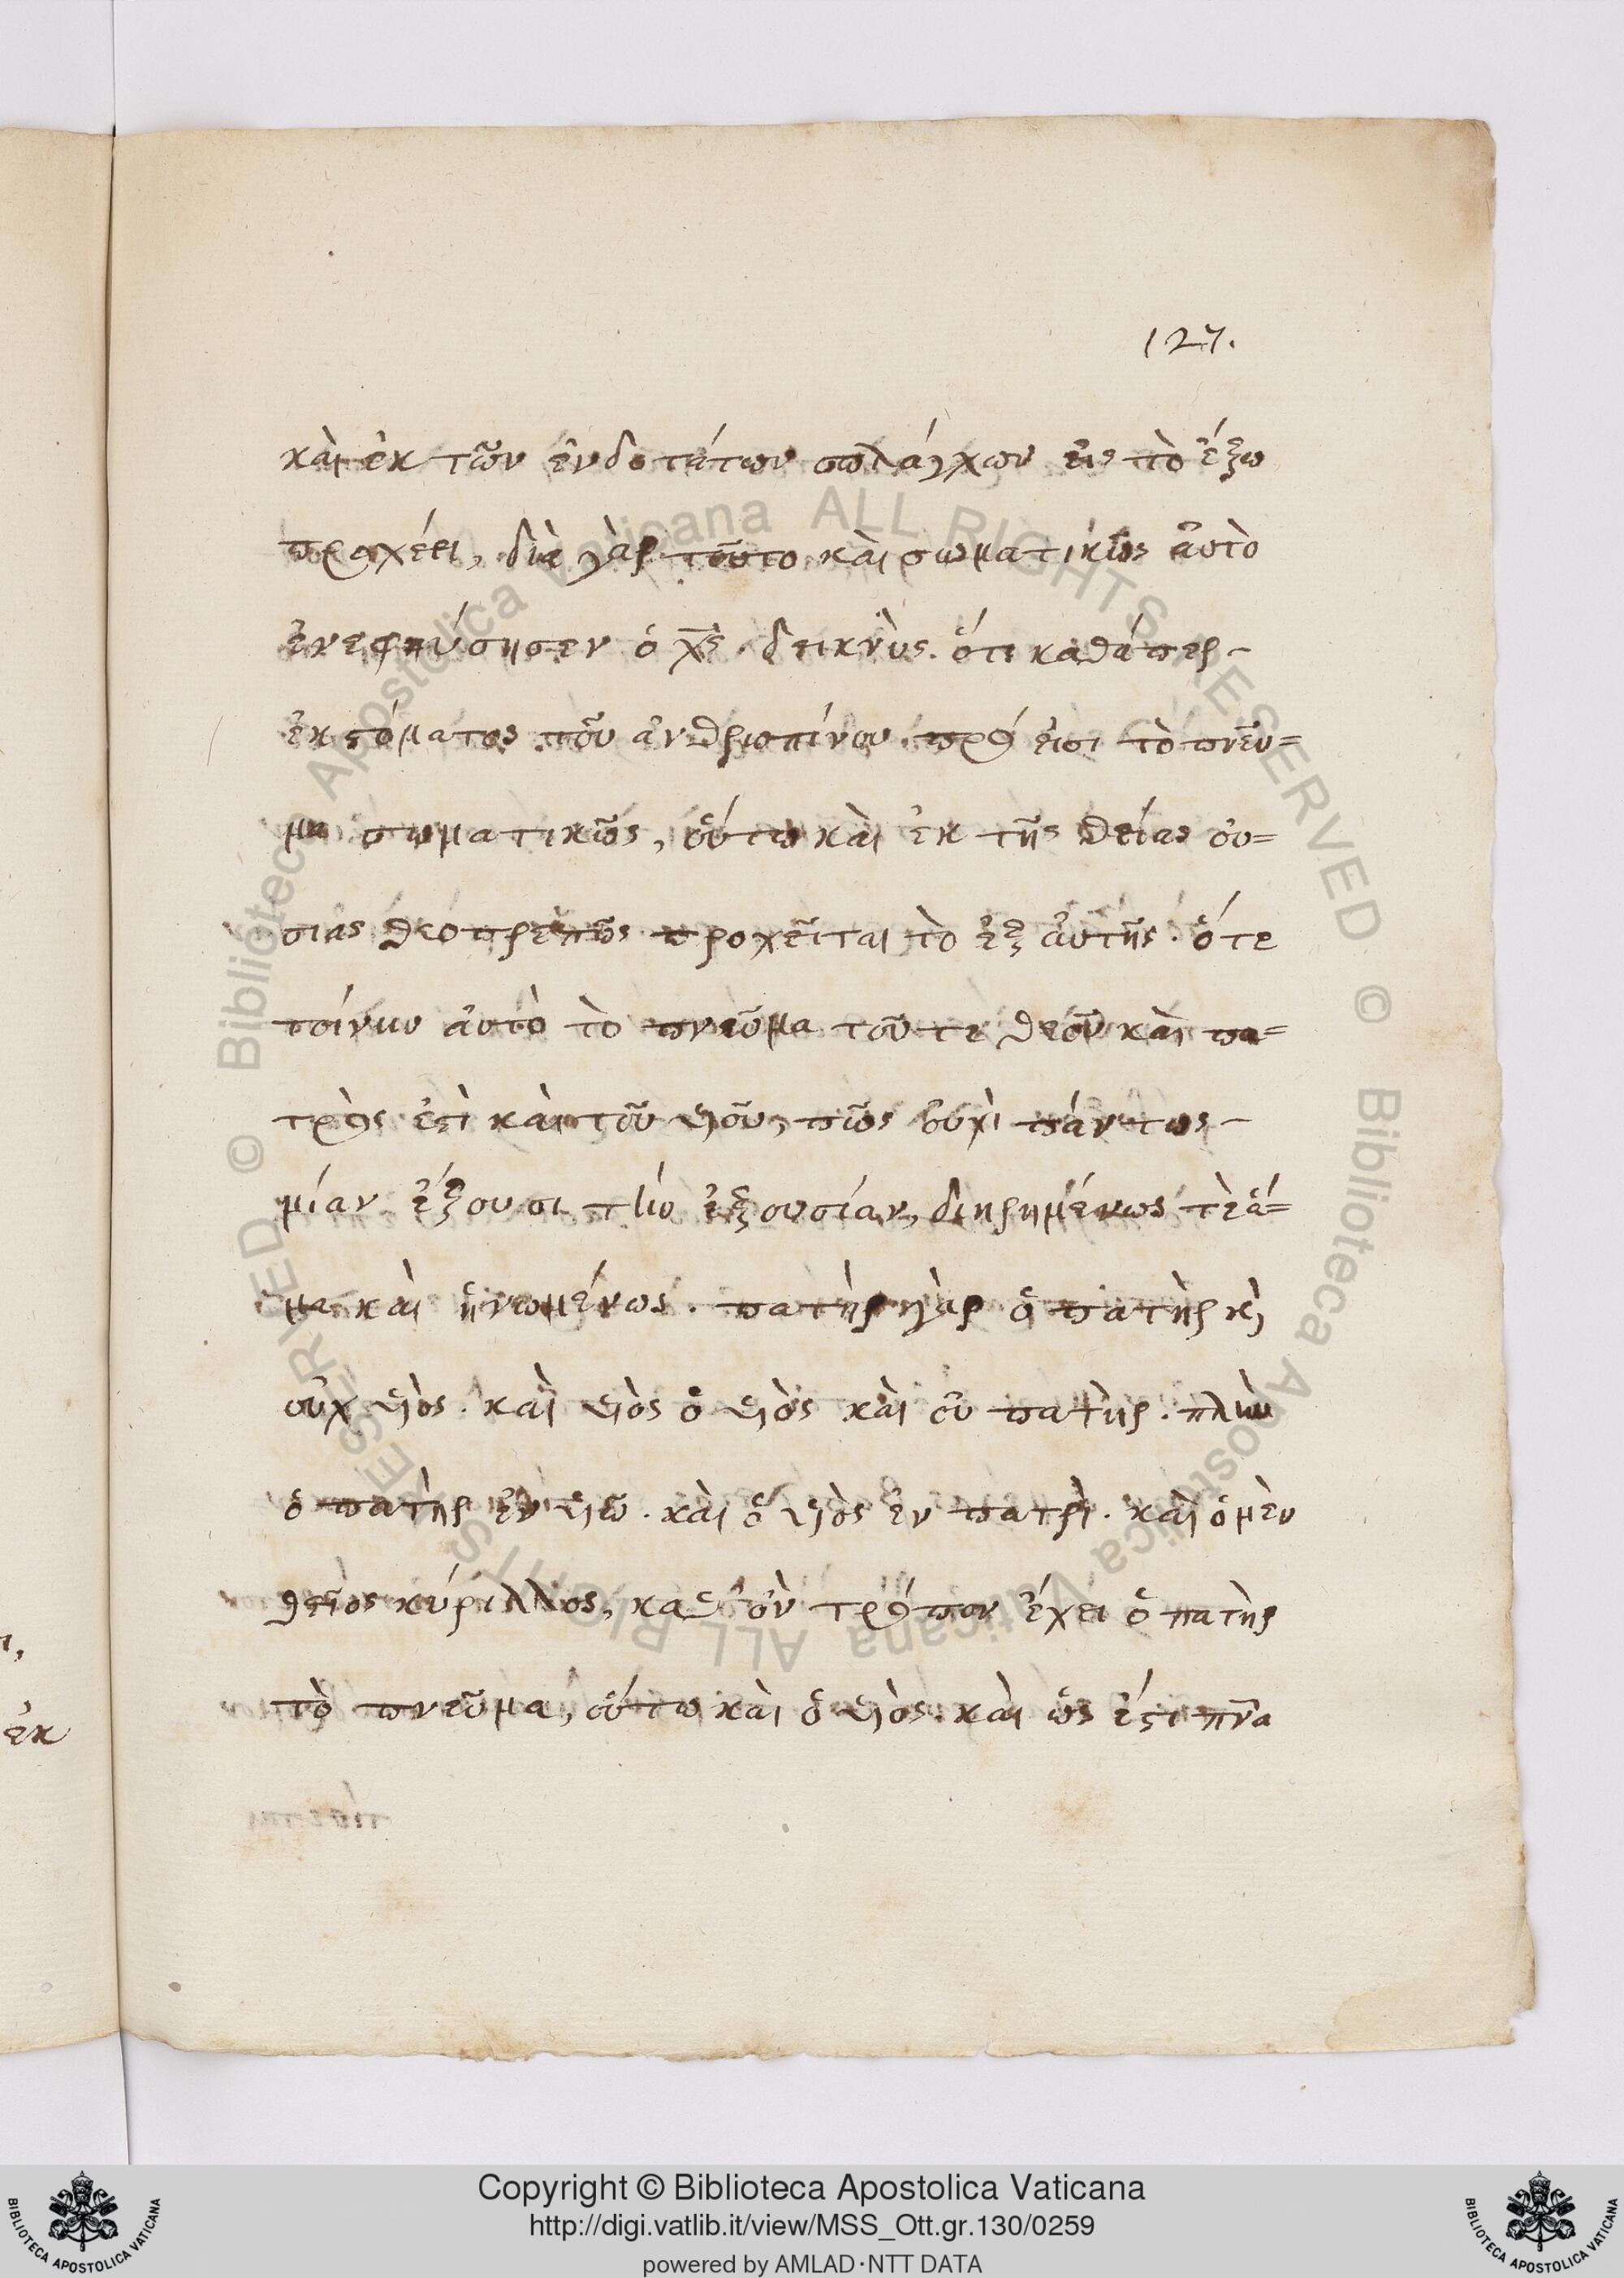 127.
καὶ ἐκ τῶν ἐνδοτάτων σπλάγχων εἰς τὸ ἔξω
προχέει, διὰ γὰρ τοῦτο καὶ σωματικῶς αὐτὸ
ἐνεφύσησεν ὁ χς̅. δεικνὺς. ὅτι καθάπερ–
ἐκ στόματος τοῦ ἀνθρωπίνου. πρόεισι τὸ πνεῦ=
μα σωματικῶς, οὕτω καὶ ἐκ τῆς θείας οὐ=
σίας θεοπρεπῶς προχεῖται τὸ ἐξ αὐτῆς. ὅτε
τοίνυν αὐτὸ τὸ πνεῦμα τοῦ τε θεοῦ καὶ πα=
τρὸς ἐστὶ καὶ τοῦ υἱοῦ, πῶς οὐχὶ πάντως–
μίαν ἕξουσι τὴν ἐξουσίαν, διῃρημένως τὲ ἅ=
μα καὶ ἡνωμένως. πατὴρ γὰρ ὁ πατὴρ κὶ
οὐχ υἱὸς. καὶ υἱὸς ὁ υἱὸς καὶ οὐ πατὴρ. πλὴν
ὁ πατὴρ ἐν υἱῷ. καὶ ὁ υἱὸς ἐν πατρὶ. καὶ ὁ μὲν
θεῖος κύριλλος, καθ' ὃν τρόπον ἔχει ὁ πατὴρ
τὸ πνεῦμα, οὕτω καὶ ὁ υἱὸς. καὶ ὥς ἐστι πν̅α
ἐκ
Copyright © Biblioteca Apostolica Vaticana
http://digi.vatlib.it/view/MSS_Ott.gr.130/0259
powered by AMLAD·NTT DATA
BIBLIOTECA APOSTOLICA VATICANA
BIBLIOTECA APOSTOLICA VATICANA
© Biblioteca Apostolica Vaticana ALL RIGHTS RESERVED © Biblioteca Apostolica Vaticana ALL RIGHTS RESERVED